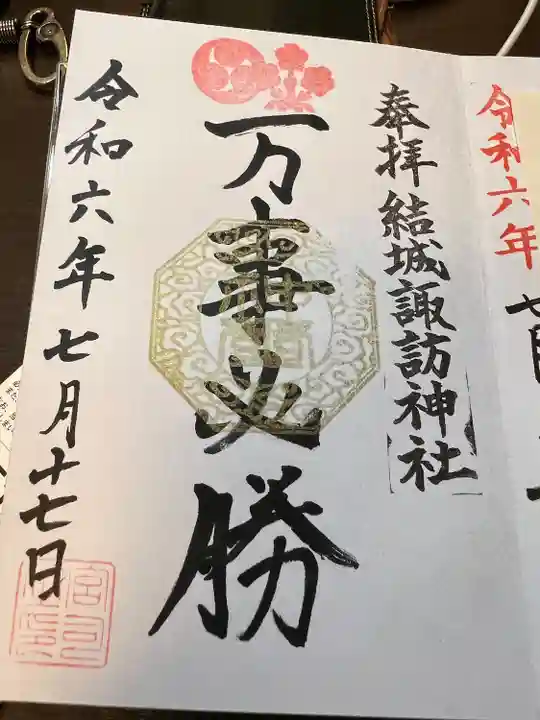 令和六年
奉拝 結城諏訪神社
万事必勝
令和六年 七月十七日